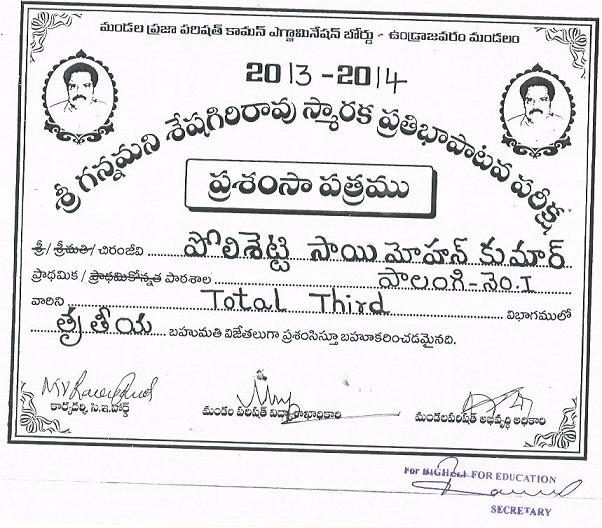 మండల ప్రజా పరిషత్ కామన్ ఎగ్జామినేషన్ బోర్డు - ఉండ్రాజవరం మండలం
2013 - 2014
శ్రీ గన్నమని శేషగిరిరావు స్మారక ప్రతిభాపాటవ పరీక్ష
ప్రశంసా పత్రము
శ్రీ/ శ్రీమతి/ చిరంజీవి పోలిశెట్టి సాయి మోహన్ కుమార్
ప్రాథమిక / ప్రాథమికోన్నత పాఠశాల పాలంగి - నెం. I
వారిని Total Third విభాగములో
తృతీయ బహుమతి విజేతలుగా ప్రశంసిస్తూ బహూకరించడమైనది.
కార్యదర్శి, సి.ఇ.బోర్డ్ మండల పరిషత్ విద్యాశాఖాధికారి మండలపరిషత్ అభివృద్ధి అధికారి
For FOR EDUCATION
SECRETARY